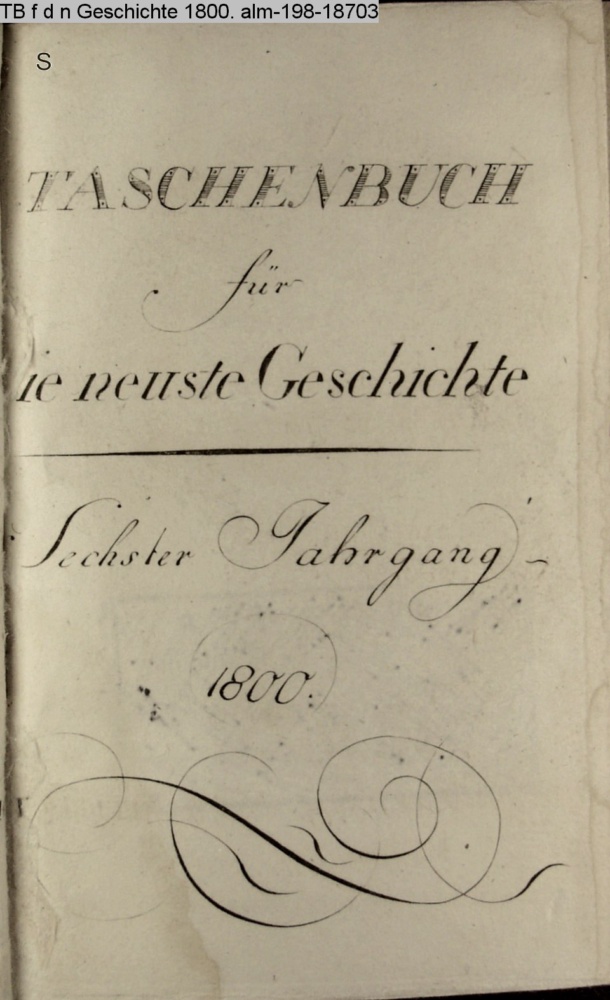 TB f d n Geschichte 1800. alm-198-18703
S
TASCHENBUCH
für
ie neuste Geschichte
Sechster Jahrgang
1800.